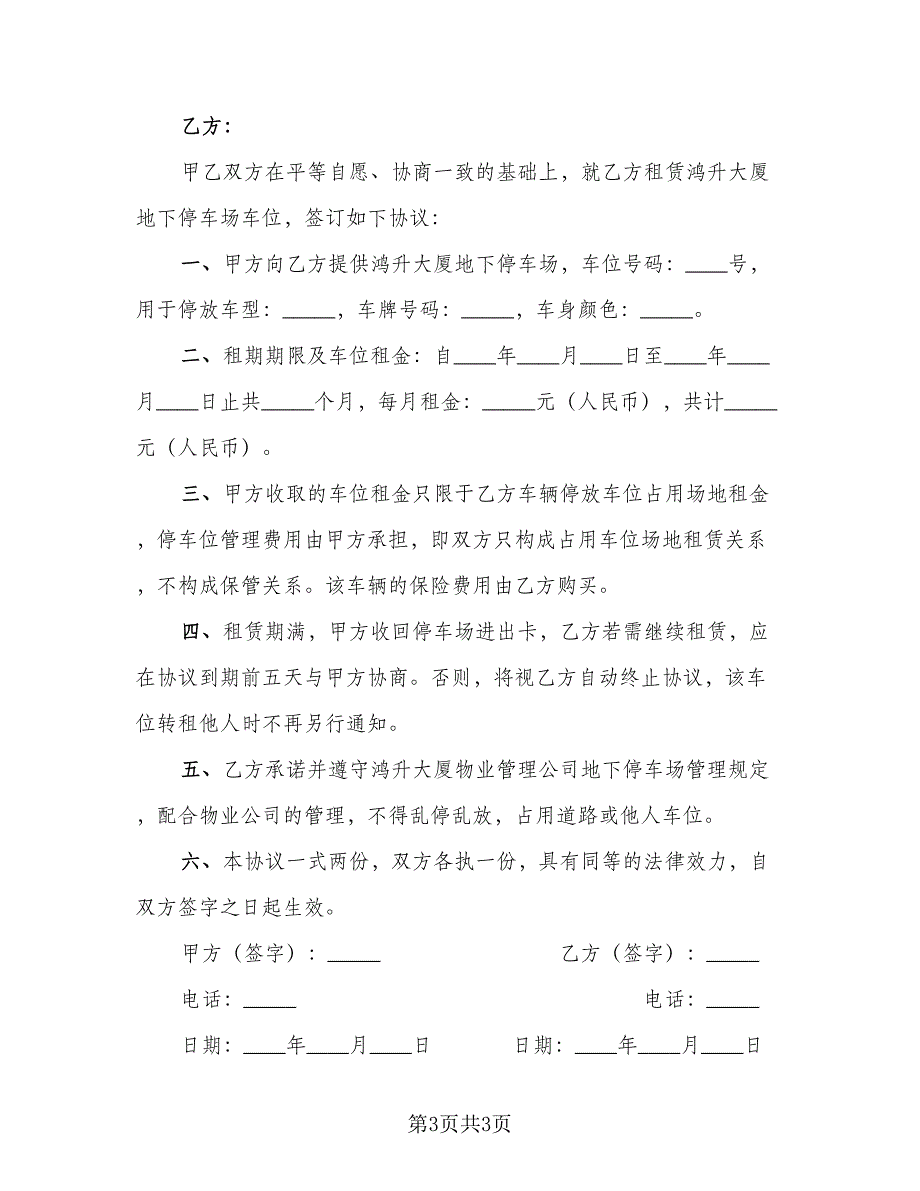 乙方：
甲乙双方在平等自愿、协商一致的基础上，就乙方租赁鸿升大厦
地下停车场车位，签订如下协议：
一、甲方向乙方提供鸿升大厦地下停车场，车位号码：____号，
用于停放车型：_____，车牌号码：_____，车身颜色：_____。
二、租期期限及车位租金：自____年____月____日至____年____
月____日止共_____个月，每月租金：_____元（人民币），共计_____
元（人民币）。
三、甲方收取的车位租金只限于乙方车辆停放车位占用场地租金
，停车位管理费用由甲方承担，即双方只构成占用车位场地租赁关系
，不构成保管关系。该车辆的保险费用由乙方购买。
四、租赁期满，甲方收回停车场进出卡，乙方若需继续租赁，应
在协议到期前五天与甲方协商。否则，将视乙方自动终止协议，该车
位转租他人时不再另行通知。
五、乙方承诺并遵守鸿升大厦物业管理公司地下停车场管理规定
，配合物业公司的管理，不得乱停乱放，占用道路或他人车位。
六、本协议一式两份，双方各执一份，具有同等的法律效力，自
双方签字之日起生效。
甲方（签字）：_____ 乙方（签字）：_____
电话：_____ 电话：_____
日期：____年____月____日 日期：____年____月____日
第3页共3页